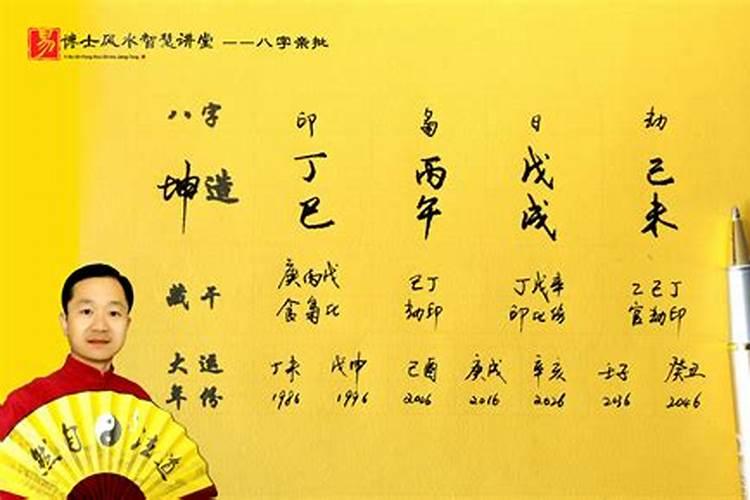 易 博士风水智慧讲堂 ——八字亲批
八字 印 枭 日 劫
坤造 丁巳 丙午 戊戌 己未
藏干 庚丙戊 己丁 丁戊辛 乙己丁
食枭比 劫印 印比伤 官劫印
大运 丁未 戊申 己酉 庚戌 辛亥 壬子 癸丑
年份 1986 1996 2006 2016 2026 2036 2046
道法自然